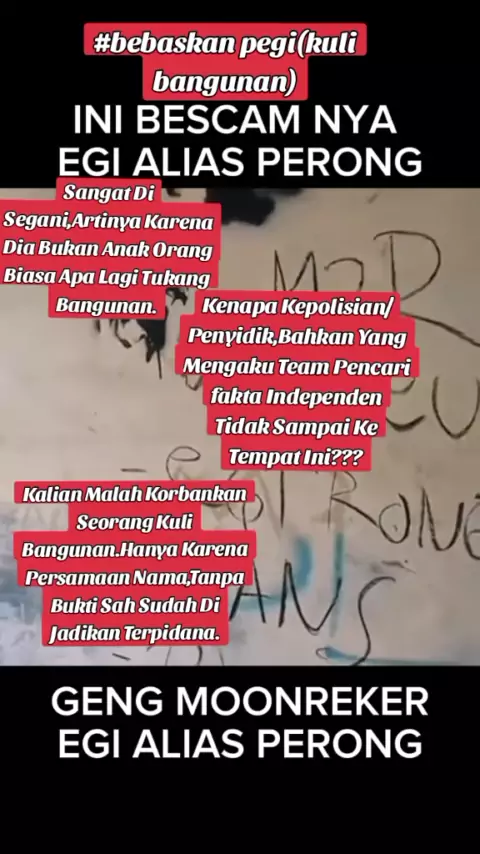 #bebaskan pegi(kuli
bangunan)
INI BESCAM NYA
EGI ALIAS PERONG
Sangat Di
Segani,Artinya Karena
Dia Bukan Anak Orang
Biasa Apa Lagi Tukang
Bangunan.
M2R
Kenapa Kepolisian/
Penyidik,Bahkan Yang
Mengaku Team Pencari
fakta Independen
Tidak Sampai Ke
Tempat Ini???
Kalian Malah Korbankan
Seorang Kuli
Bangunan.Hanya Karena
Persamaan Nama,Tanpa
Bukti Sah Sudah Di
Jadikan Terpidana.
GENG MOONREKER
EGI ALIAS PERONG